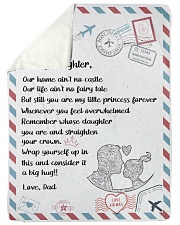 ghter,
Our home ain't no castle
Our life ain't no fairy tale
But still you are my little princess forever
Whenever you feel overwhelmed
Remember whose daughter
you are and straighten
your crown.
Wrap yourself up in
this and consider it
a big hug!!
Love, Dad